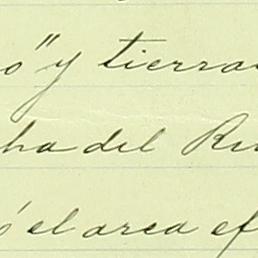 o" y tierra
ha del Ru
ó el area ef